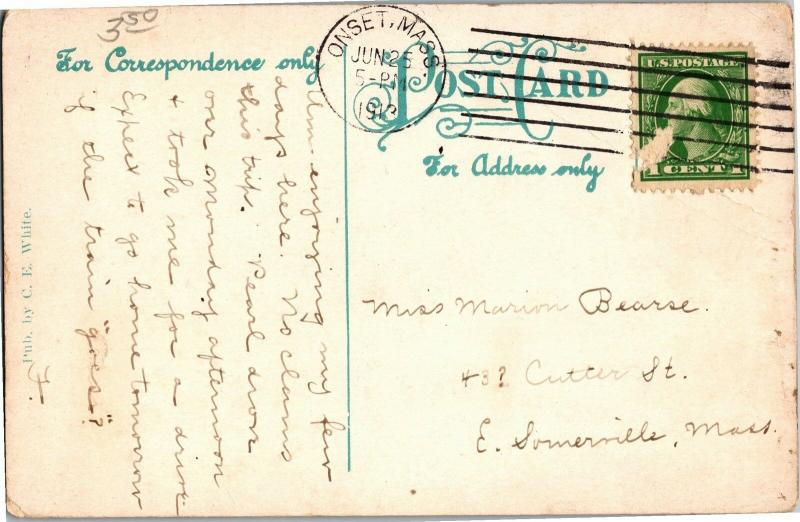 3 50
For Correspondence only
POST CARD
For Address only
ONSET, MASS.
JUN 25
5-PM
1913
U.S. POSTAGE
1 CENT 1
Am enjoying my few
days here. No clams
this trip. Pearl drove
over Monday afternoon
& took me for a drive
Expect to go home tomorrow
if the train "goes"?
F.
Miss Marion Bearse.
437 Cutter St.
E. Somerville, Mass.
Pub. by C. E. White.